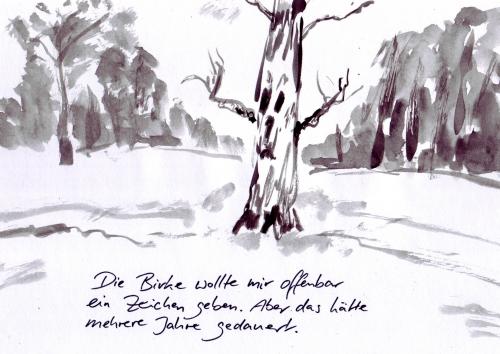 Die Birke wollte mir offenbar
ein Zeichen geben. Aber das hätte
mehrere Jahre gedauert.